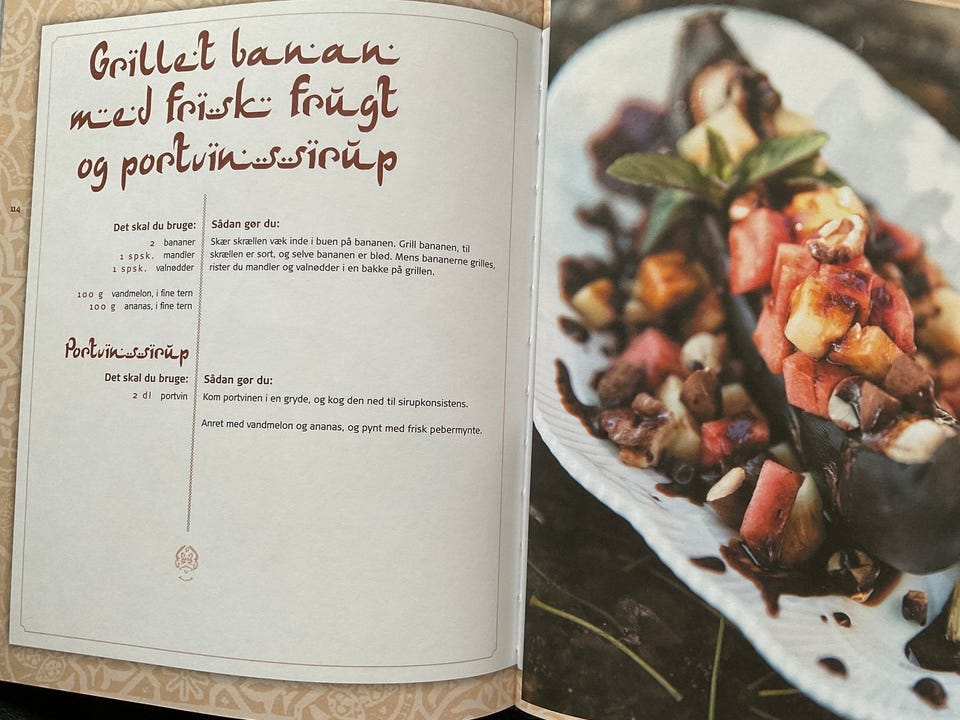 Grillet banan
med frisk frugt
og portvinssirup
114
Det skal du bruge:
2 bananer
1 spsk. mandler
1 spsk. valnødder
100 g vandmelon, i fine tern
100 g ananas, i fine tern
Sådan gør du:
Skær skrællen væk inde i buen på bananen. Grill bananen, til
skrællen er sort, og selve bananen er blød. Mens bananerne grilles,
rister du mandler og valnødder i en bakke på grillen.
Portvinssirup
Det skal du bruge:
2 dl portvin
Sådan gør du:
Kom portvinen i en gryde, og kog den ned til sirupkonsistens.
Anret med vandmelon og ananas, og pynt med frisk pebermynte.